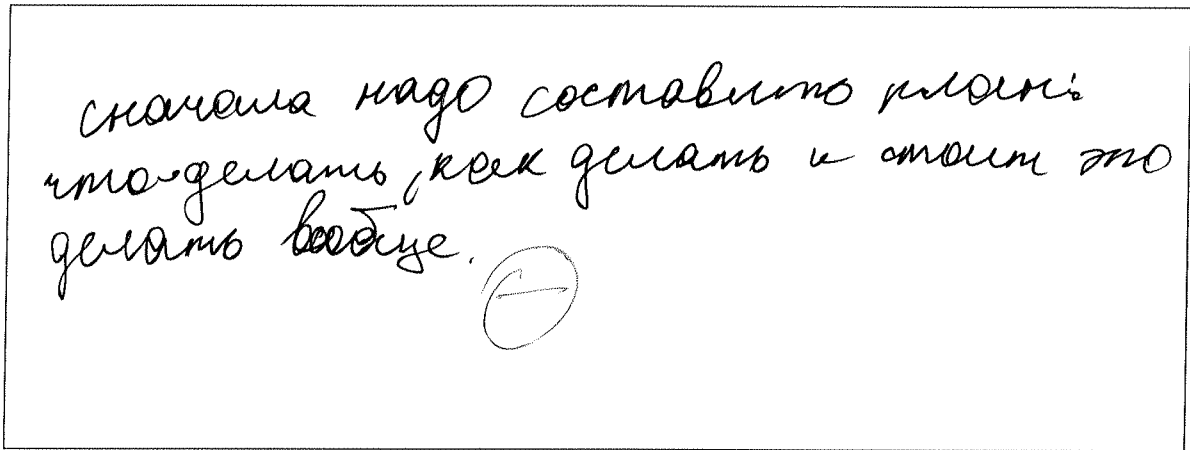 сначала надо составить план:
что делать, как делать и стоит это
делать вообще.